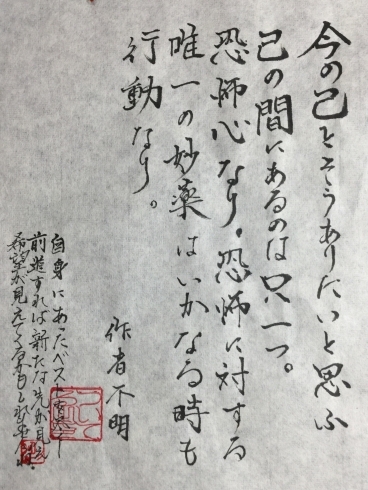 今の己とそうありたいと思ふ
己の間にあるのは只一つ。
恐怖心なり。恐怖に対する
唯一の妙薬はいかなる時も
行動なり。
作者不明
自身にあったベスト
前進すれば新たな先が見え
希望が見えてくる